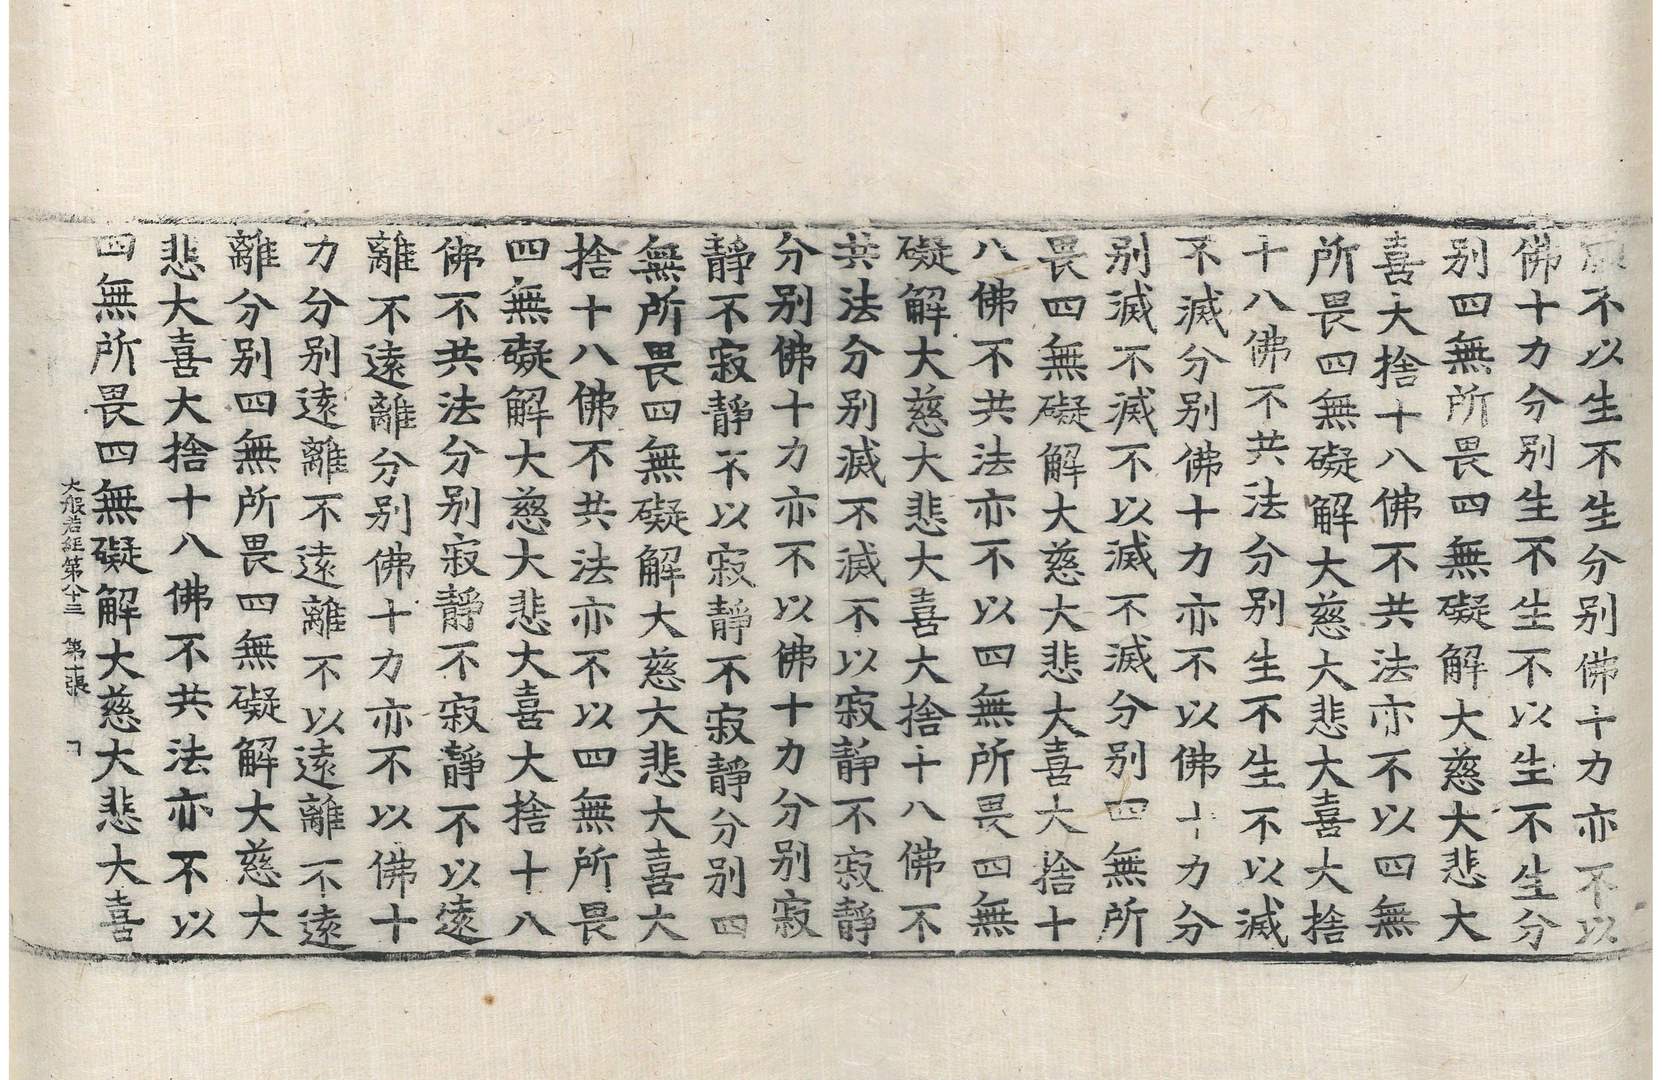 願不以生不生分別佛十力亦不以
佛十力分別生不生不以生不生分
別四無所畏四無礙解大慈大悲大
喜大捨十八佛不共法亦不以四無
所畏四無礙解大慈大悲大喜大捨
十八佛不共法分別生不生不以滅
不滅分別佛十力亦不以佛十力分
別滅不滅不以滅不滅分別四無所
畏四無礙解大慈大悲大喜大捨十
八佛不共法亦不以四無所畏四無
礙解大慈大悲大喜大捨十八佛不
共法分別滅不滅不以寂靜不寂靜
分別佛十力亦不以佛十力分別寂
靜不寂靜不以寂靜不寂靜分別四
無所畏四無礙解大慈大悲大喜大
捨十八佛不共法亦不以四無所畏
四無礙解大慈大悲大喜大捨十八
佛不共法分別寂靜不寂靜不以遠
離不遠離分別佛十力亦不以佛十
力分別遠離不遠離不以遠離不遠
離分別四無所畏四無礙解大慈大
悲大喜大捨十八佛不共法亦不以
四無所畏四無礙解大慈大悲大喜
大般若経第八十二 第 張